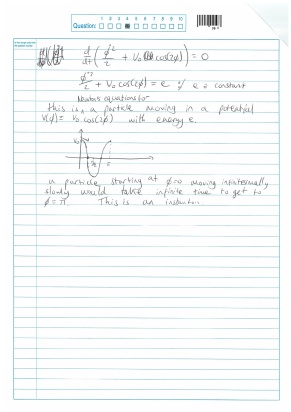 Question: 1 2 3 4 5 6 7 8 9 10
d/dt ( φ̇²/2 + V₀ cos(2φ) ) = 0
φ̇²/2 + V₀ cos(2φ) = e % e = constant
Newtons equations for
this is a particle moving in a potential
V(φ) = V₀ cos(2φ) with energy e.
V₀
a particle starting at φ=0 moving infinitesimally
slowly would take infinite time to get to
φ = π. This is an instanton